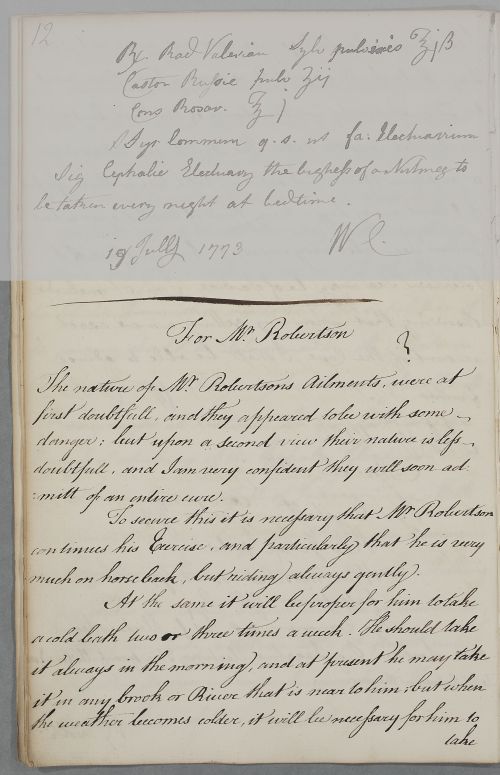 12
℞ Rad Valerian Sylv pulv ℥jß
Castor Russie pulv ʒij
Cons Rosar. ℥j
Syr Commun q. s. ut fa: Electuarium
Sig Cephalic Electuary the bigness of a Nutmeg to
be taken every night at bedtime.
19 July 1773 W C.
For Mr. Robertson
The nature of Mr Robertsons Ailments, were at
first doubtfull, and they appeared to be with some
danger; but upon a second view their nature is less
doubtfull, and I am very confident they will soon ad
:mitt of an entire cure.
To secure this it is necessary that Mr Robertson
continues his Exercise, and particularly that he is very
much on horseback, but riding always gently.
At the same it will be proper for him to take
a cold bath two or three times a week. He should take
it always in the morning, and at present he may take
it in any brook or River that is near to him, but when
the weather becomes colder, it will be necessary for him to
take